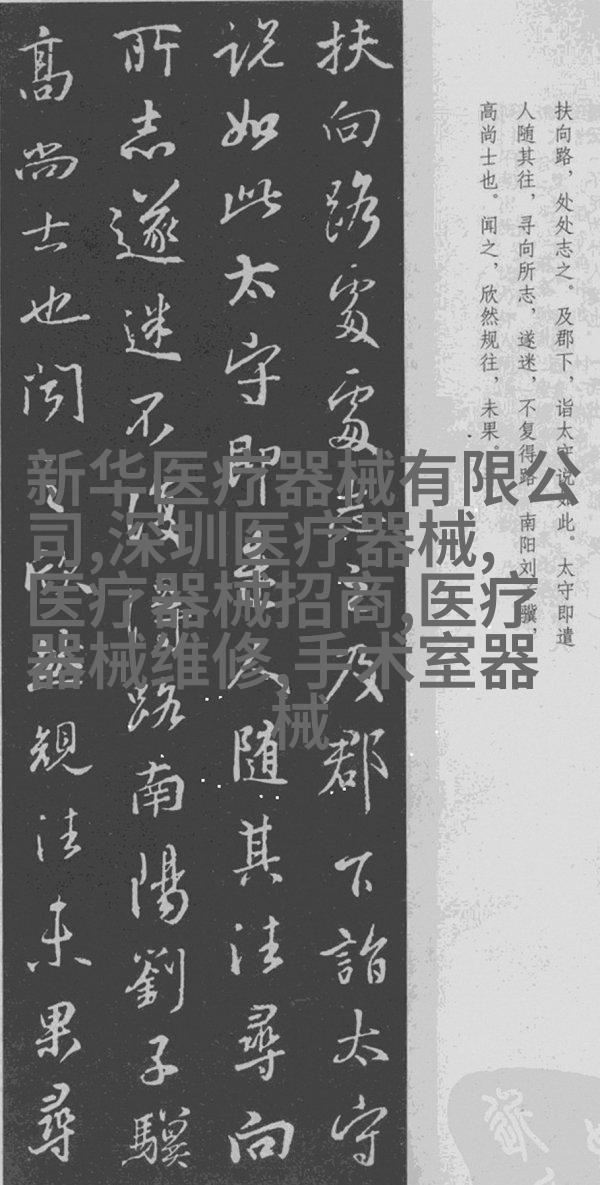 扶向路，处处志之。及郡下，诣太守说如此。太守即遣
人随其往，寻向所志，遂迷，不复得路 南阳刘 骥，
高尚士也。闻之，欣然规往，未果。
扶向路處處志之及郡下詣太守
说如此太守即遣人随其往尋向
所志遂迷不復得路南陽劉子驥
高尚士也闻之欣然規往未果尋
新华医疗器械有限公
司,深圳医疗器械,
医疗器械招商,医疗
器械维修,手术室器
械